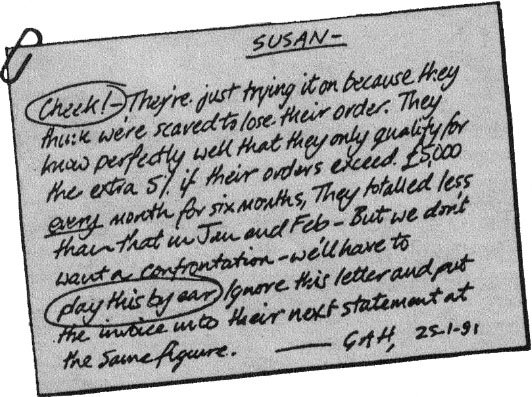 SUSAN-
Cheek!-They're just trying it on because they
think we're scared to lose their order. They
know perfectly well that they only qualify for
the extra 5% if their orders exceed £5,000
every month for six months, They totalled less
than that in Jan and Feb - But we don't
want a confrontation - we'll have to
play this by ear, Ignore this letter and put
the invoice into their next statement at
the same figure. —— GAH, 25-1-91